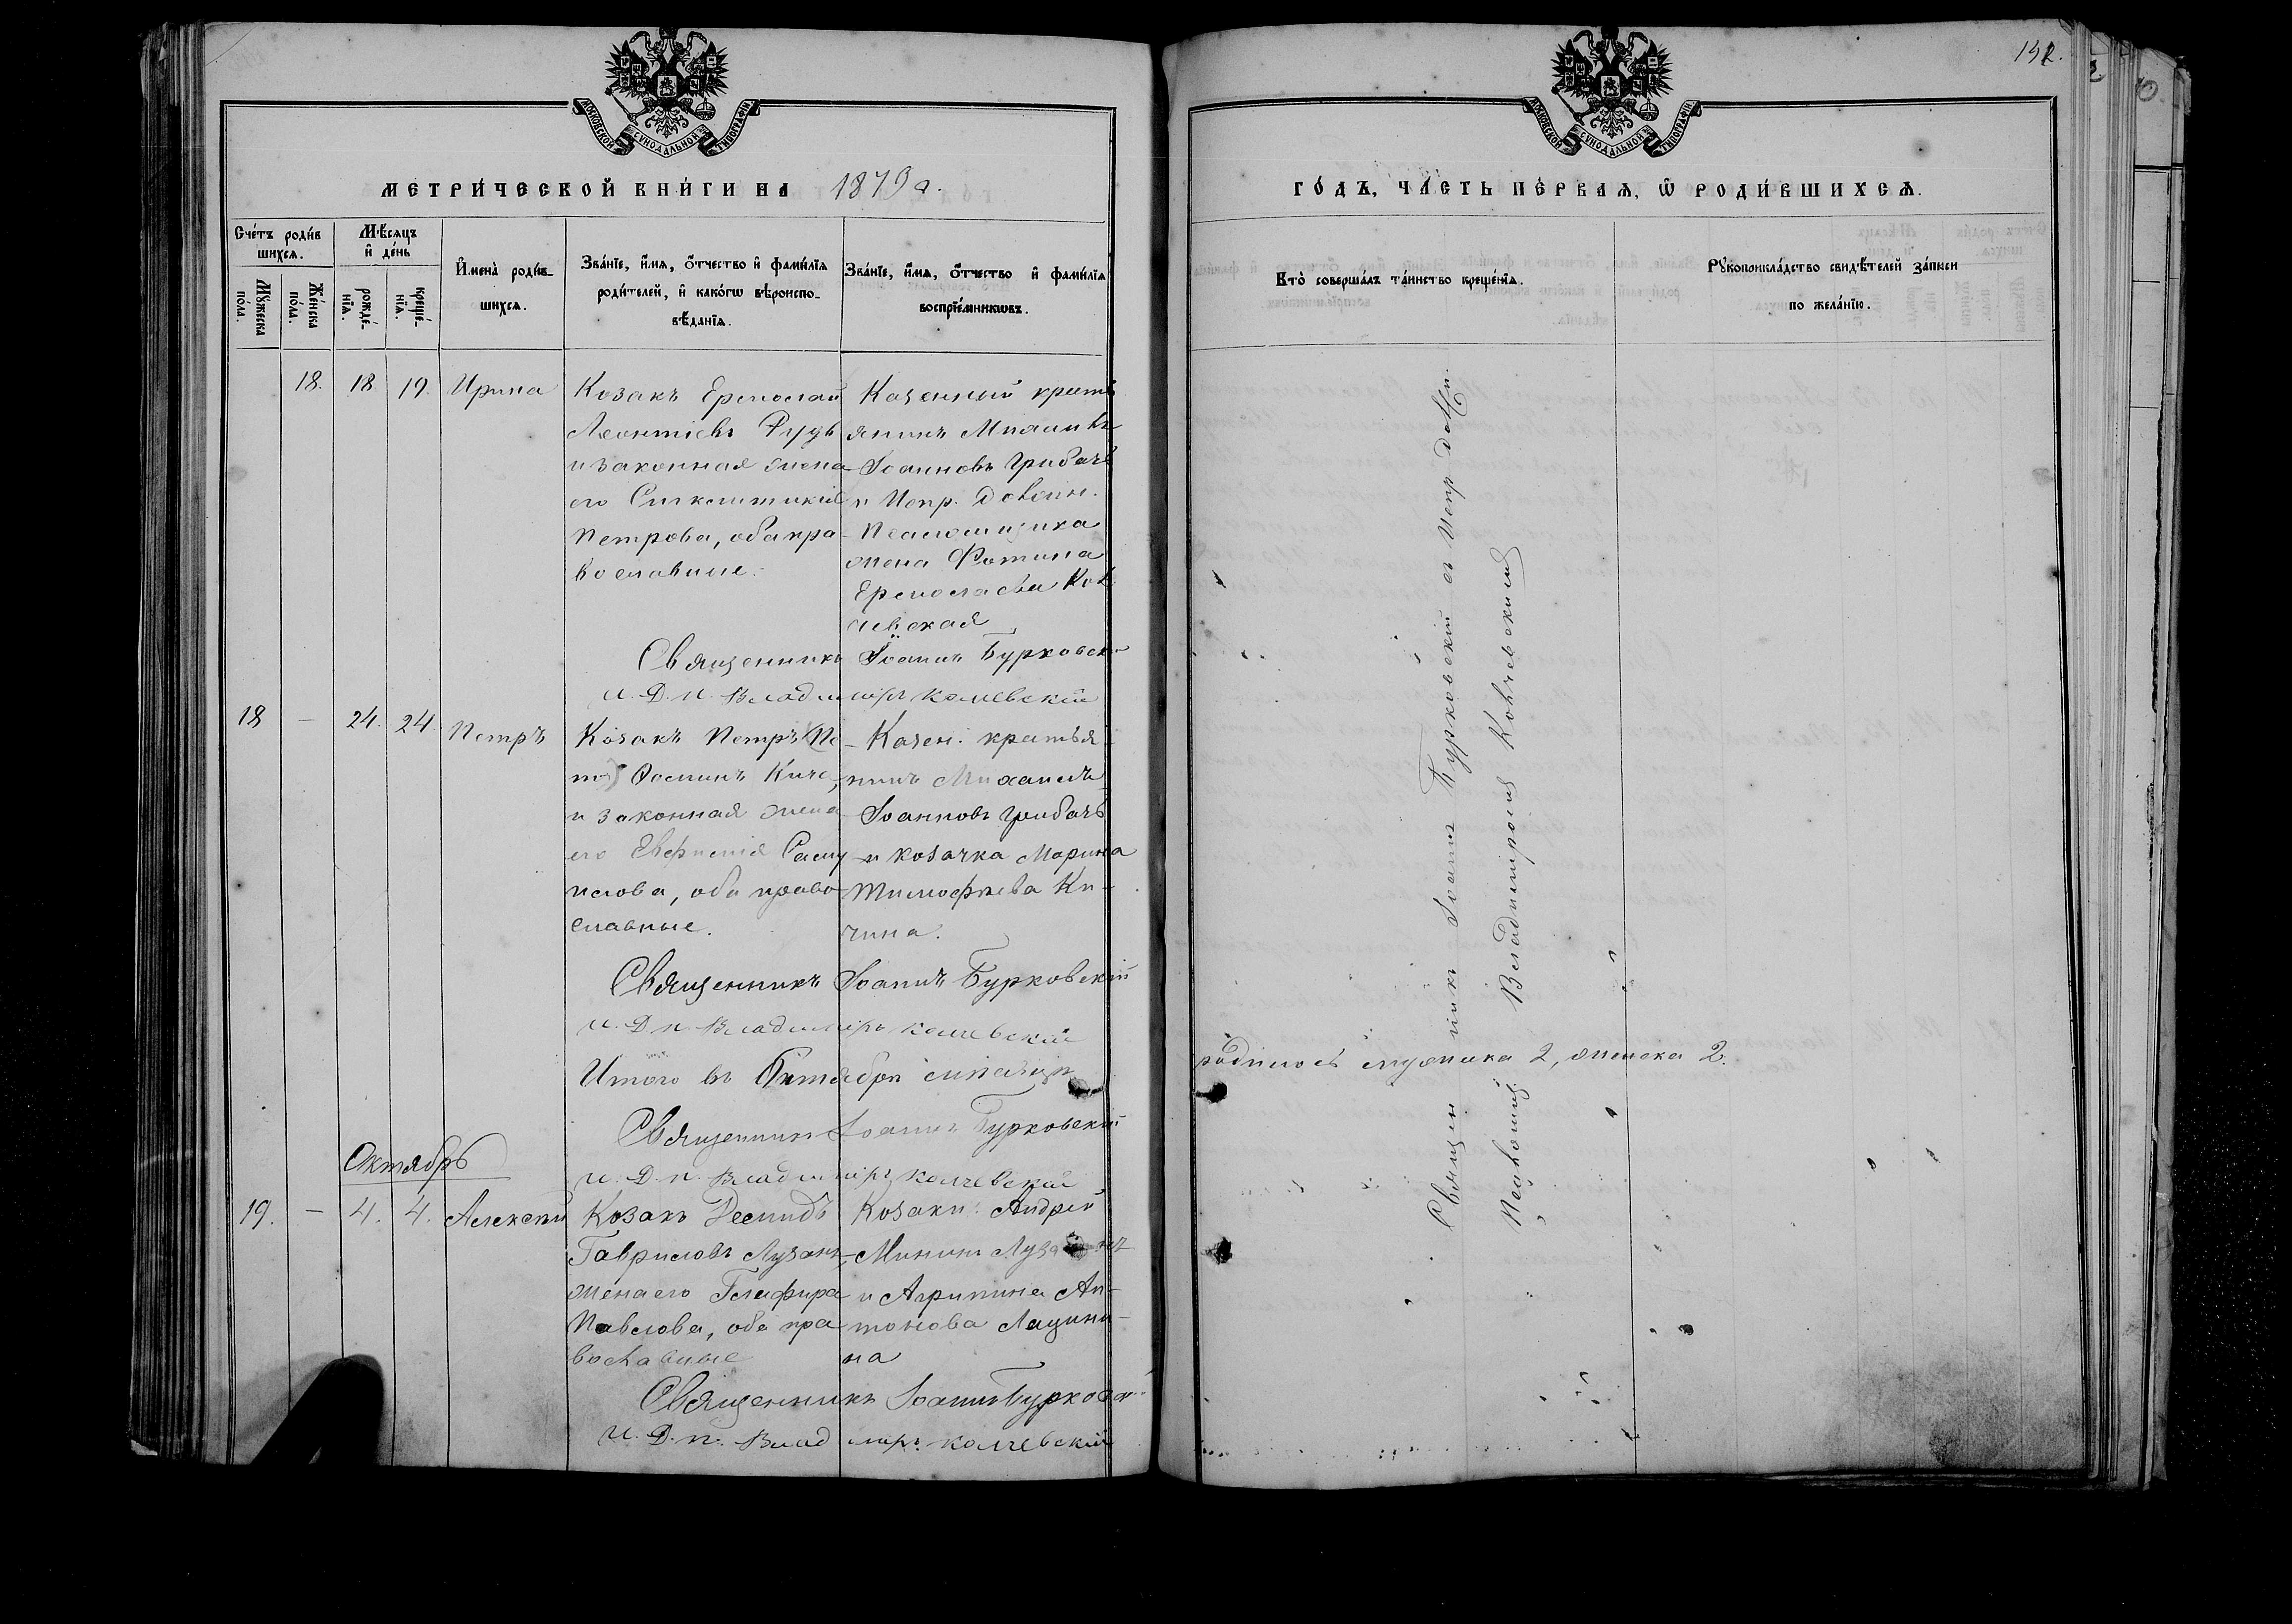 МОСКОВСКОЙ СУНОДАЛЬНОЙ ТИПОГРАФІИ
МЕТРИ́ЧЕСКОЙ КНИ́ГИ НА 1879 г.
Сче́тъ роди́в
шихсѧ.
Мѣ́сѧцъ
и҆ де́нь
Мꙋ́жеска
по́ла.
Же́нска
по́ла.
рожде́
нїѧ.
креще́
нїѧ.
И҆мена̀ роди́в-
шихсѧ.
Зва́нїе, и҆́мѧ, ѻ҆́тчество и҆ фами́лїѧ
роди́телей, и҆ како́гѡ вѣроиспо-
вѣ́данїѧ.
Зва́нїе, и҆́мѧ, ѻ҆́тчество и҆ фами́лїѧ
воспрїе́мникѡвъ.
18. 18 19. Ирина
Козакъ Ермолай
Леонтіевъ Рудь
и законная жена
его Синклитикія
Петрова, оба пра
вославные.
Казенный кресть
янинъ Михаилъ
Іоанновъ Грибачъ
и Испр. Должн.
Псаломщика
жена Фотина
Ермолаева Кол
чевская
Священникъ Іоаннъ Бурковскі
И. Д. п. Владиміръ Колчевскій
18 — 24. 24. Петръ
Козакъ Петръ (Пе
т) Фоминъ Кича,
и законная жена
его Евфимія Саму
илова, оба право
славные.
Казен. крестья
нинъ Михаилъ
Іоанновъ Грибачъ
и козачка Марина
Тимофѣева Ки-
чина.
Священникъ Іоаннъ Бурковскій
И. Д. п. Владиміръ Колчевскій
Итого въ мѣсяцѣ
Священникъ Іоаннъ Бурковскій
И. Д. п. Владиміръ Колчевскій
Октябрь
19. — 4. 4. Алексѣй
Козакъ
Гавриловъ Лузанъ,
жена его Глафира
Павлова, оба пра
вославные
Козаки: Андрей
Мининъ
и Агрипина Ан-
тонова
на
Священникъ Іоаннъ Бурковскі
И. Д. п. Владиміръ Колчевскій
МОСКОВСКОЙ СУНОДАЛЬНОЙ ТИПОГРАФІИ
ГО́ДЪ, ЧА́СТЬ ПЕ́РВАѦ, Ѡ҆ РОДИ́ВШИХСѦ.
Кто̀ соверша́лъ та́инство креще́нїѧ.
Рꙋкоприкла́дство свидѣ́телей за́писи
по жела́нїю.
Священникъ Іоаннъ Бурковскій съ Испр. Долж.
Псаломщ. Владиміромъ Колчевскимъ
родилось мужеска 2, женска 2.